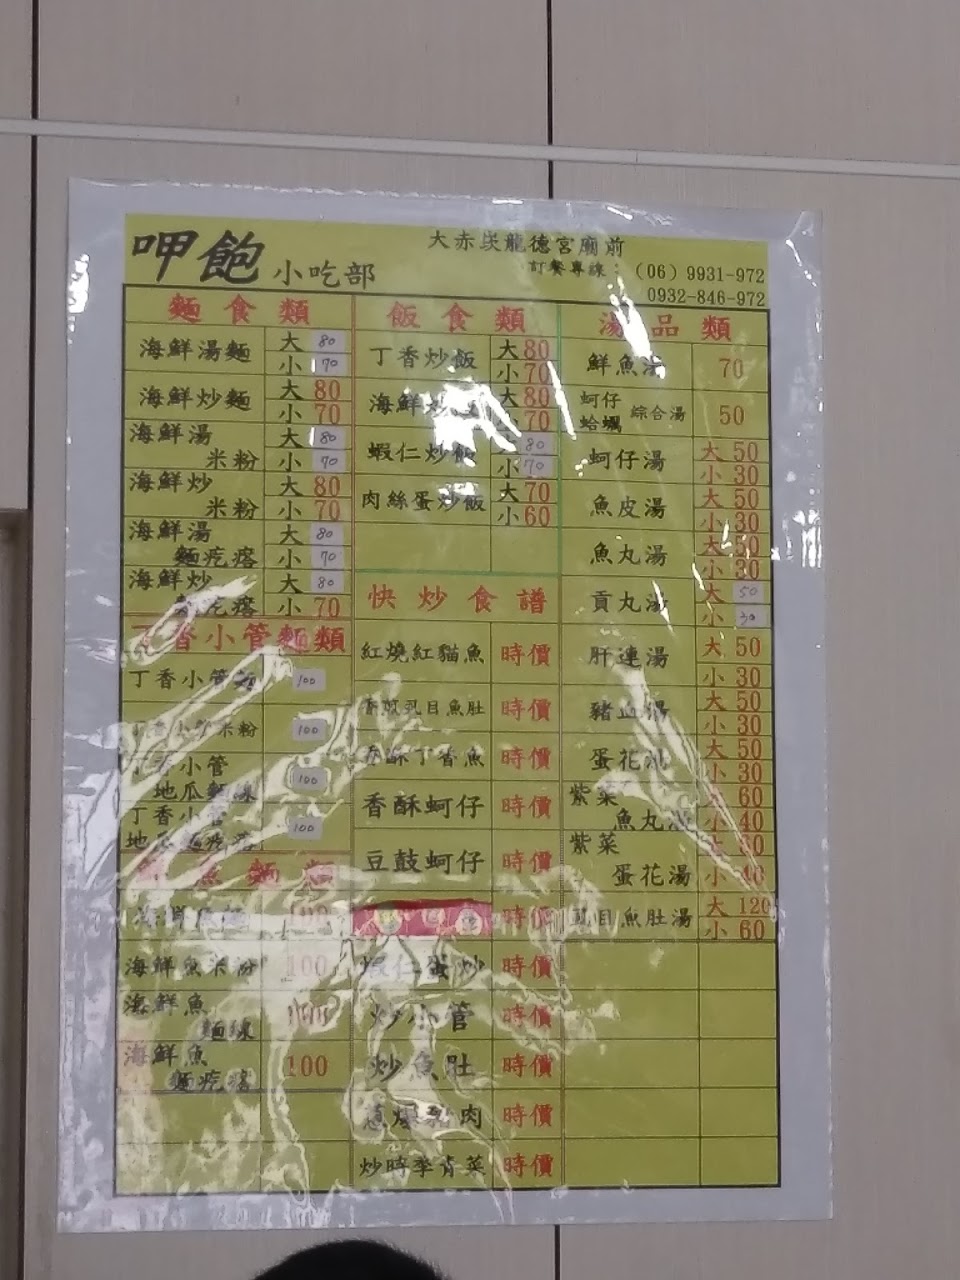 呷飽 小吃部
大赤崁龍德宮廟前
訂餐專線：（06）9931-972
0932-846-972
麵食類
海鮮湯麵 大 80 小 70
海鮮炒麵 大 80 小 70
海鮮湯米粉 大 80 小 70
海鮮炒米粉 大 80 小 70
海鮮湯麵疙瘩 大 80 小 70
海鮮炒 疙瘩 大 80 小 70
丁香小管麵類
丁香小管麵 100
米粉 100
丁香小管地瓜麵線 100
丁香小管地瓜麵疙瘩 100
魚麵類
100
海鮮魚米粉 100
海鮮魚麵線 100
海鮮魚麵疙瘩 100
飯食類
丁香炒飯 大 80 小 70
海鮮炒 大 80 小 70
蝦仁炒飯 80 小 70
肉絲蛋炒飯 大 70 小 60
快炒食譜
紅燒紅貓魚 時價
香煎虱目魚肚 時價
香酥丁香魚 時價
香酥蚵仔 時價
豆鼓蚵仔 時價
時價
蝦仁蛋炒 時價
炒小管 時價
炒魚肚 時價
蔥爆 肉 時價
炒時季青菜 時價
湯品類
鮮魚湯 70
蚵仔蛤蠣 綜合湯 50
蚵仔湯 大 50 小 30
魚皮湯 大 50 小 30
魚丸湯 大 50 小 30
貢丸湯 大 50 小 30
肝連湯 大 50 小 30
豬血湯 大 50 小 30
蛋花湯 大 50 小 30
紫菜魚丸湯 大 60 小 40
紫菜蛋花湯 大 60 小 40
虱目魚肚湯 大 120 小 60